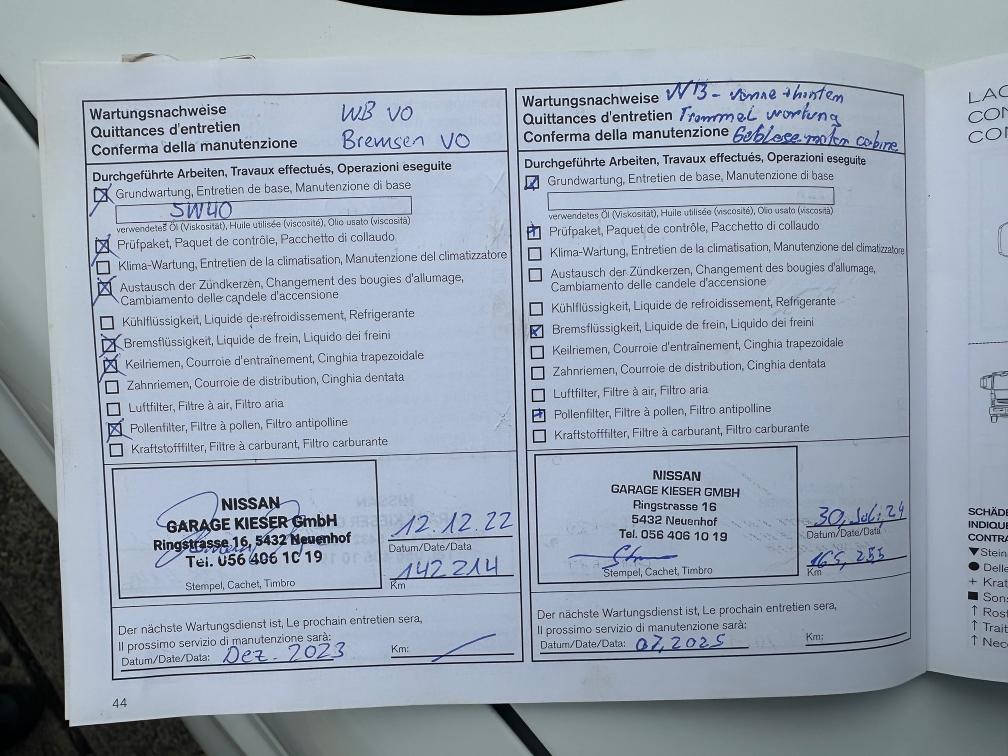 Wartungsnachweise
Quittances d'entretien
Conferma della manutenzione
WB VO
Bremsen VO
Durchgeführte Arbeiten, Travaux effectués, Operazioni eseguite
Grundwartung, Entretien de base, Manutenzione di base
5W40
verwendetes Öl (Viskosität), Huile utilisée (viscosité), Olio usato (viscosità)
Prüfpaket, Paquet de contrôle, Pacchetto di collaudo
Klima-Wartung, Entretien de la climatisation, Manutenzione del climatizzatore
Austausch der Zündkerzen, Changement des bougies d'allumage,
Cambiamento delle candele d'accensione
Kühlflüssigkeit, Liquide de refroidissement, Refrigerante
Bremsflüssigkeit, Liquide de frein, Liquido dei freini
Keilriemen, Courroie d'entraînement, Cinghia trapezoidale
Zahnriemen, Courroie de distribution, Cinghia dentata
Luftfilter, Filtre à air, Filtro aria
Pollenfilter, Filtre à pollen, Filtro antipolline
Kraftstofffilter, Filtre à carburant, Filtro carburante
NISSAN
GARAGE KIESER GmbH
Ringstrasse 16, 5432 Neuenhof
Tel. 056 406 10 19
Stempel, Cachet, Timbro
12.12.22
Datum/Date/Data
142214
Km
Der nächste Wartungsdienst ist, Le prochain entretien sera,
Il prossimo servizio di manutenzione sarà:
Datum/Date/Data: Dez. 2023 Km:
44
Wartungsnachweise WB - vorne + hinten
Quittances d'entretien Trommel wartung
Conferma della manutenzione Gebläsemotor cabine
Durchgeführte Arbeiten, Travaux effectués, Operazioni eseguite
Grundwartung, Entretien de base, Manutenzione di base
verwendetes Öl (Viskosität), Huile utilisée (viscosité), Olio usato (viscosità)
Prüfpaket, Paquet de contrôle, Pacchetto di collaudo
Klima-Wartung, Entretien de la climatisation, Manutenzione del climatizzatore
Austausch der Zündkerzen, Changement des bougies d'allumage,
Cambiamento delle candele d'accensione
Kühlflüssigkeit, Liquide de refroidissement, Refrigerante
Bremsflüssigkeit, Liquide de frein, Liquido dei freini
Keilriemen, Courroie d'entraînement, Cinghia trapezoidale
Zahnriemen, Courroie de distribution, Cinghia dentata
Luftfilter, Filtre à air, Filtro aria
Pollenfilter, Filtre à pollen, Filtro antipolline
Kraftstofffilter, Filtre à carburant, Filtro carburante
NISSAN
GARAGE KIESER GMBH
Ringstrasse 16
5432 Neuenhof
Tel. 056 406 10 19
Stempel, Cachet, Timbro
30, Juli 24
Datum/Date/Data
165,255
Km
Der nächste Wartungsdienst ist, Le prochain entretien sera,
Il prossimo servizio di manutenzione sarà:
Datum/Date/Data: 07,2025 Km:
LAC
CON
CON
SCHÄDE
INDIQUE
CONTRA
Stein
Delle
+ Krat
Sons
↑ Rost
↑ Trait
↑ Nece